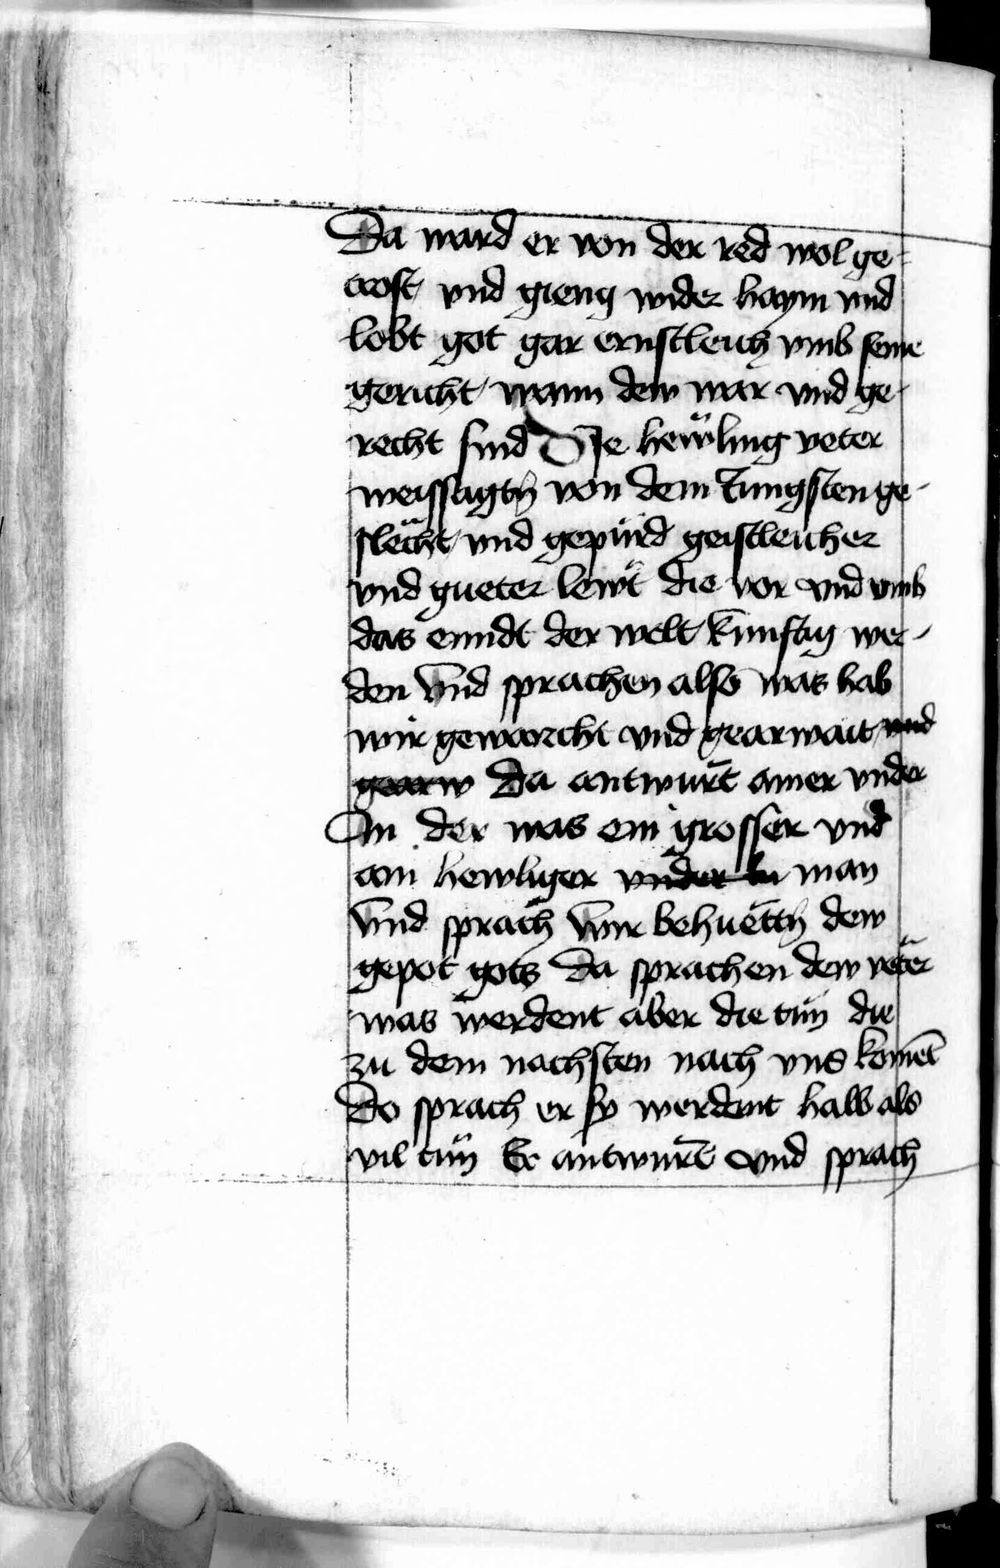 Da ward er von der red wol ge-
trost vnd gieng wider haym vnd
lobt got gar ernstleich vmb seine
gericht wann dew war vnd ge-
recht sind Die hewͤling veter
weissagtn̄ von dem Jungsten ge-
slächt vnd gepürd geistleicher
vnd gueter lewͤt die vor vnd vmb
das enndt der welt künftig wer-
den Vnd sprachen also was hab
wir geworcht vnd gearwait vnd
gearw Da antwurt̄ ainer vnder
In der was ein grosser vnd
ain hewliger vnder in man
Vnd sprach Wir behuettn̄ dew
gepot gots Da sprachen dew veter
was werdent aber die tün die
zu dem nachsten nach vns komēt
Do sprach er sy werdent halb als
vil tün Er antwurt̄ vnd sprach